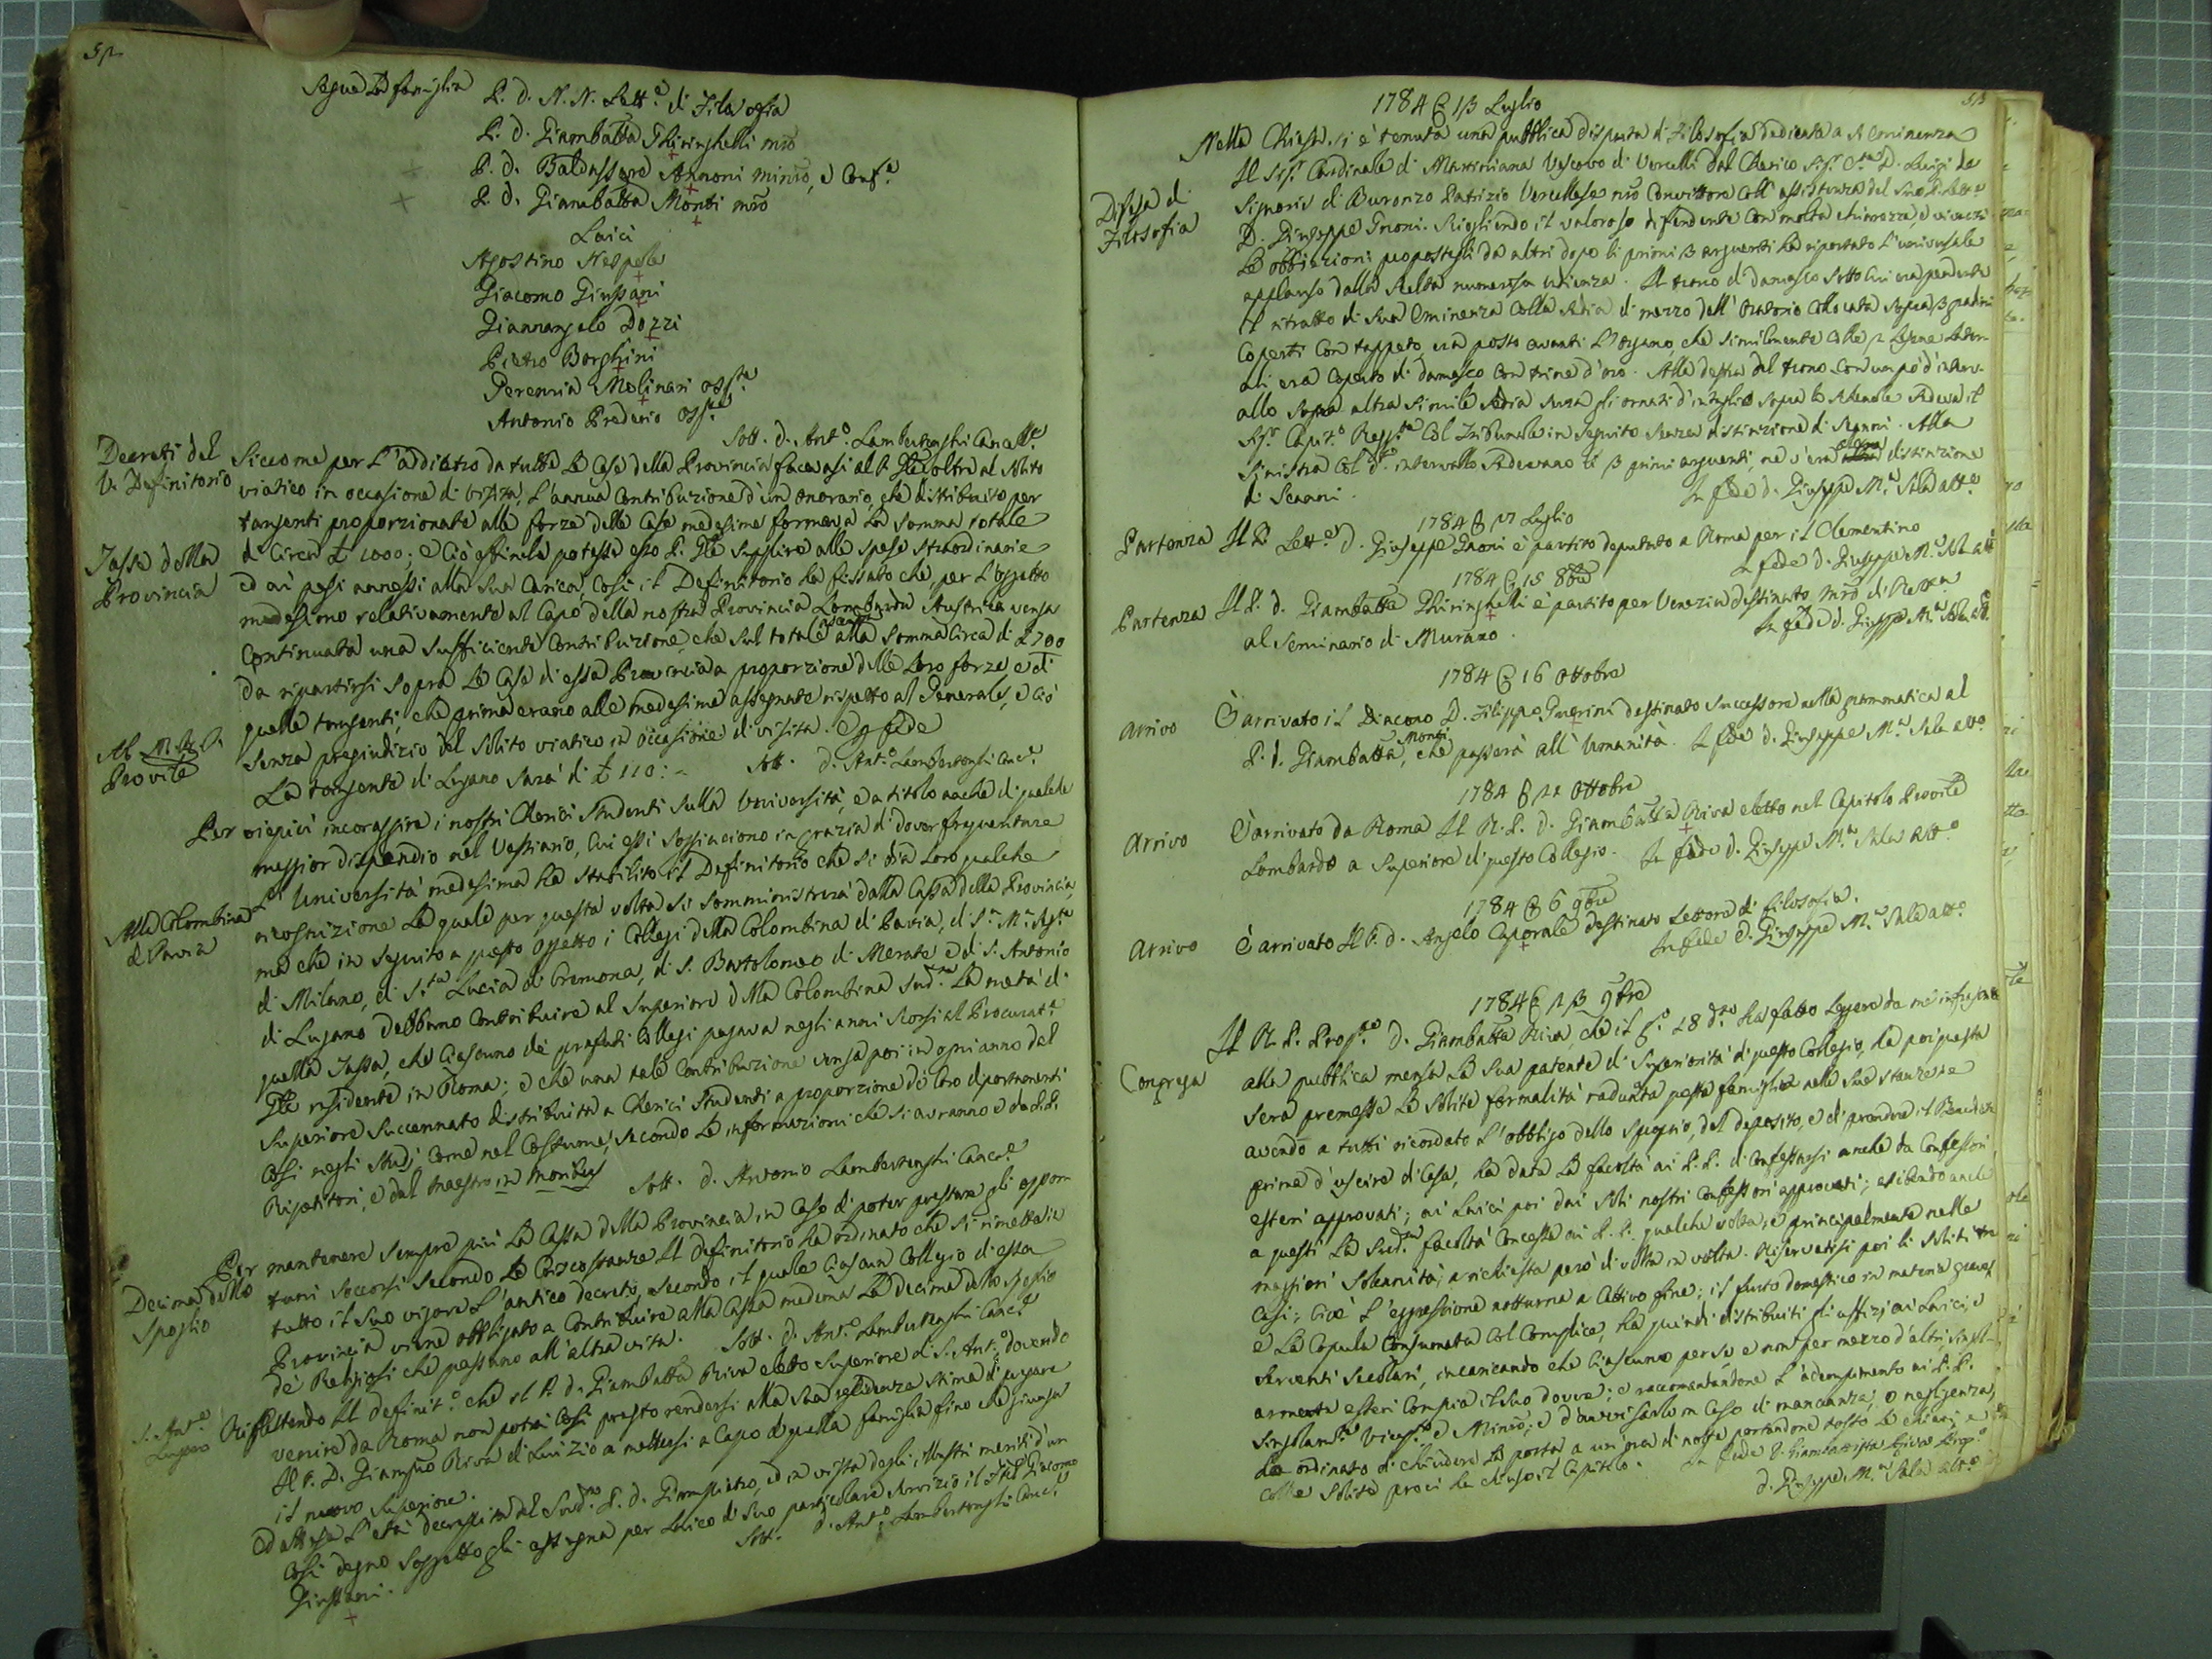 52
Segue La famiglia
P. d. N. N. Lett.e di Filosofia
P. d. Giambatta Ghiringhelli mro
P. d. Baldassare Annoni minro, e Conf.e
P. d. Giambatta Monti mro
Laici
Agostino Nespola
Giacomo Giussani
Giannangelo Pozzi
Pietro Borghini
Perennia Molinari osp.te
Antonio Predario osp.te
Sott. d. Ant.o Lambertenghi Cancell.e
Decreti del
V. Definitorio
Siccome per L'addietro da tutte Le Case della Provincia facevasi al P. Gle oltre al solito
viatico in occasione di visita, L'annua Contribuzione d'un onorario, che distribuito per
tangenti proporzionate alle forze delle Case medesime formava La somma totale
Tassa della
Provincia
di Circa £ 1000; e Ciò affinchè potesse esso P. Gle supplire alle spese straordinarie
ed ai pesi annessi alla sua Carica, Così il Definitorio ha fissato che, per L'oggetto
medesimo relativamente al Capo della nostra Provincia Lombarda Austriaca venga
Continuata una sufficiente Contribuzione, che sul totale ascenda alla somma Circa di £ 700
da ripartirsi sopra Le Case di essa Provincia a proporzione delle Loro forze e di
quelle tangenti, che prima erano alle medesime assegnate rispetto al Generale, e Ciò
Al M. R. P.
Provile
senza pregiudizio del solito viatico in occasione di visita. In fede
La tangente di Lugano sarà di £ 110: -
Sott. d. Ant.o Lambertenghi Canc.e
Per viepiù incoraggire i nostri Cherici studenti sulla Università, e a titolo anche di qualche
maggior dispendio nel Vestiario, Cui essi soggiaciono in grazia di dover frequentare
L'Università medesima ha stabilito il Definitorio che si dia Loro qualche
Alla Colombina
di Pavia
ricognizione La quale per questa volta si somministrerà dalla Cassa della Provincia,
ma che in seguito a questo oggetto i Collegi della Colombina di Pavia, di S.a M.a Seg.ta
di Milano, di S.ta Lucia di Cremona, di S. Bartolomeo di Merate e di S. Antonio
di Lugano debbano Contribuire al Superiore della Colombina Sud.ta La metà di
quella Tassa, che Ciascuno dè prefati Collegi pagava negli anni scorsi al Procurat.e
Gle residente in Roma; e che una tale Contribuzione venga poi in ogni anno dal
Superiore succennato distribuita a Cherici Studenti a proporzione dè Loro diportamenti
Così negli studj Come nel Costume, secondo Le informazioni che si avranno e da P.P.
Ripetitori, e dal Maestro in moribus
Sott. d. Antonio Lambertenghi Canc.e
Per mantenere sempre più La Cassa della Provincia in Caso di poter prestare gli oppor
Decima dello
Spoglio
tuni soccorsi secondo Le Circostanze Il Definitorio ha ordinato che si rimetta in
tutto il suo vigore L'antico decreto, secondo il quale Ciascun Collegio di essa
Provincia viene obbligato a Contribuire alla Cassa medema La decima dello spoglio
dè Religiosi che passano all'altra vita.
Sott. d. Ant.o Lambertenghi Canc.e
S. Ant.o
Lugano
Riflettendo Il Definit.o che il P. d. Giambatta Riva eletto Superiore di S. Ant.o dovendo
venire da Roma non potrà Così presto rendersi alla sua residenza stima di pregare
Il P. D. Giampro Riva di Lui zio a mettersi a Capo di quella famiglia fino che giunga
il nuovo Superiore.
Ed attesa L'età decrepita del Sud.to P. d. Giampietro, ed in vista degli illustri meriti d'un
Così degno soggetto gli assegna per Laico di suo particolare servizio il Frèl Giacomo
Giussani.
Sott. d. Ant.o Lambertenghi Canc.e
53
1784 @ 13 Luglio
Difesa di
Filosofia
Nella Chiesa si è tenuta una pubblica disputa di Filosofia dedicata a S. Eminenza
Il Sig.r Cardinale di Martiniana Vescovo di Vercelli dal Cherico Sig.r C.te D. Luigi de
Signoris di Buronzo Patrizio Vercellese nro Convittore Coll'assistenza del Suo P. Lett.e
D. Giuseppe Gnoni. Sciogliendo il valoroso difendente Con molta chiarezza, e vivacità
Le obbiezioni propostegli da altri dopo li primi 3 arguenti ha riportato L'universale
applauso dalla scelta numerosa udienza. Il trono di damasco sotto Cui era pendente
il ritratto di Sua Eminenza Colla sedia di mezzo dell'Oratorio Collocata sopra 3 gradini
Coperti Con tappeto, era posto avanti L'organo, che similmente Colle 2 Lesene Latera
li era Coperto di damasco Con trine d'oro. Alla destra del trono Con un pò d'interv-
allo sopra altra simile sedia senza gli ornati d'intaglio sopra lo schienale sedeva il
Sig.r Cap.o Regg.te Col Tribunale in seguito senza distinzione di scanni. Alla
sinistra Col d.o intervallo sedevano li 3 primi arguenti, ne v'era altra distinzione
di scanni.
In fede d. Giuseppe M.a Sala att.o
1784 @ 27 Luglio
Partenza
Il P. Lett.e d. Giuseppe Gnoni è partito deputato a Roma per il Clementino
In fede d. Giuseppe M.a Sala att.o
1784 @ 15 8bre
Partenza
Il P. d. Giambatta Ghiringhelli è partito per Venezia destinato mro di Rett.a
al Seminario di Murano.
In fede d. Giuseppe M.a Sala att.o
1784 @ 16 Ottobre
Arrivo
È arrivato il Diacono D. Filippo Guerini destinato successore nella grammatica al
P. d. Giambatta Monti, che passerà all'Umanità. In fede d. Giuseppe M.a Sala att.o
1784 @ 22 Ottobre
Arrivo
È arrivato da Roma Il R. P. d. Giambatta Riva eletto nel Capitolo Provile
Lombardo a Superiore di questo Collegio. In fede d. Giuseppe M.a Sala Att.o
1784 @ 6 9bre
Arrivo
È arrivato Il P. d. Angelo Caporale destinato Lettore di filosofia.
In fede d. Giuseppe M.a Sala att.o
1784 @ 23 9bre
Congrega
Il R. P. Prop.to D. Giambatta Riva, che il g.o 28 d.o ha fatto Leggere da me infrascritto
alla pubblica mensa La sua patente di Superiorità di questo Collegio, ha poi questa
sera premesse Le solite formalità radunta questa famiglia nelle sue stanze, ed
avendo a tutti ricordato L'obbligo dello spoglio, del deposito, e di prendere il Benedicite
prima d'uscire di Casa, ha data La facoltà ai P.P. di Confessarsi anche da Confessori
esteri approvati; ai Laici poi dai soli nostri Confessori approvati; esibendo anche
a questi La Sud.ta facoltà Concessa ai P.P. qualche volta, e principalmente nelle
maggiori Solennità, a richiesta però di volta in volta. Riservatisi poi li soliti tre
Casi; Cioè L'egressione notturna a Cattivo fine; il furto domestico in materia grave;
e La Copula Consumata Col Complice, ha quindi distribuiti gli uffizj ai Laici, e
serventi secolari, incaricando che Ciascuno per se e non per mezzo d'altri, singol-
armente esteri Compia il suo dovere; e raccomandandone L'adempimento ai P.P.
singolarm.te Vicep.to e Minro; e d'avvisarlo in Caso di mancanza, o negligenza,
ha ordinato di chiudere La porta a un'ora di notte portandone tosto Le chiavi, e
Colle solite preci ha chiuso il Capitolo.
In fede D. Giambattista Riva Prep.o
d. Giuseppe M.a Sala att.o